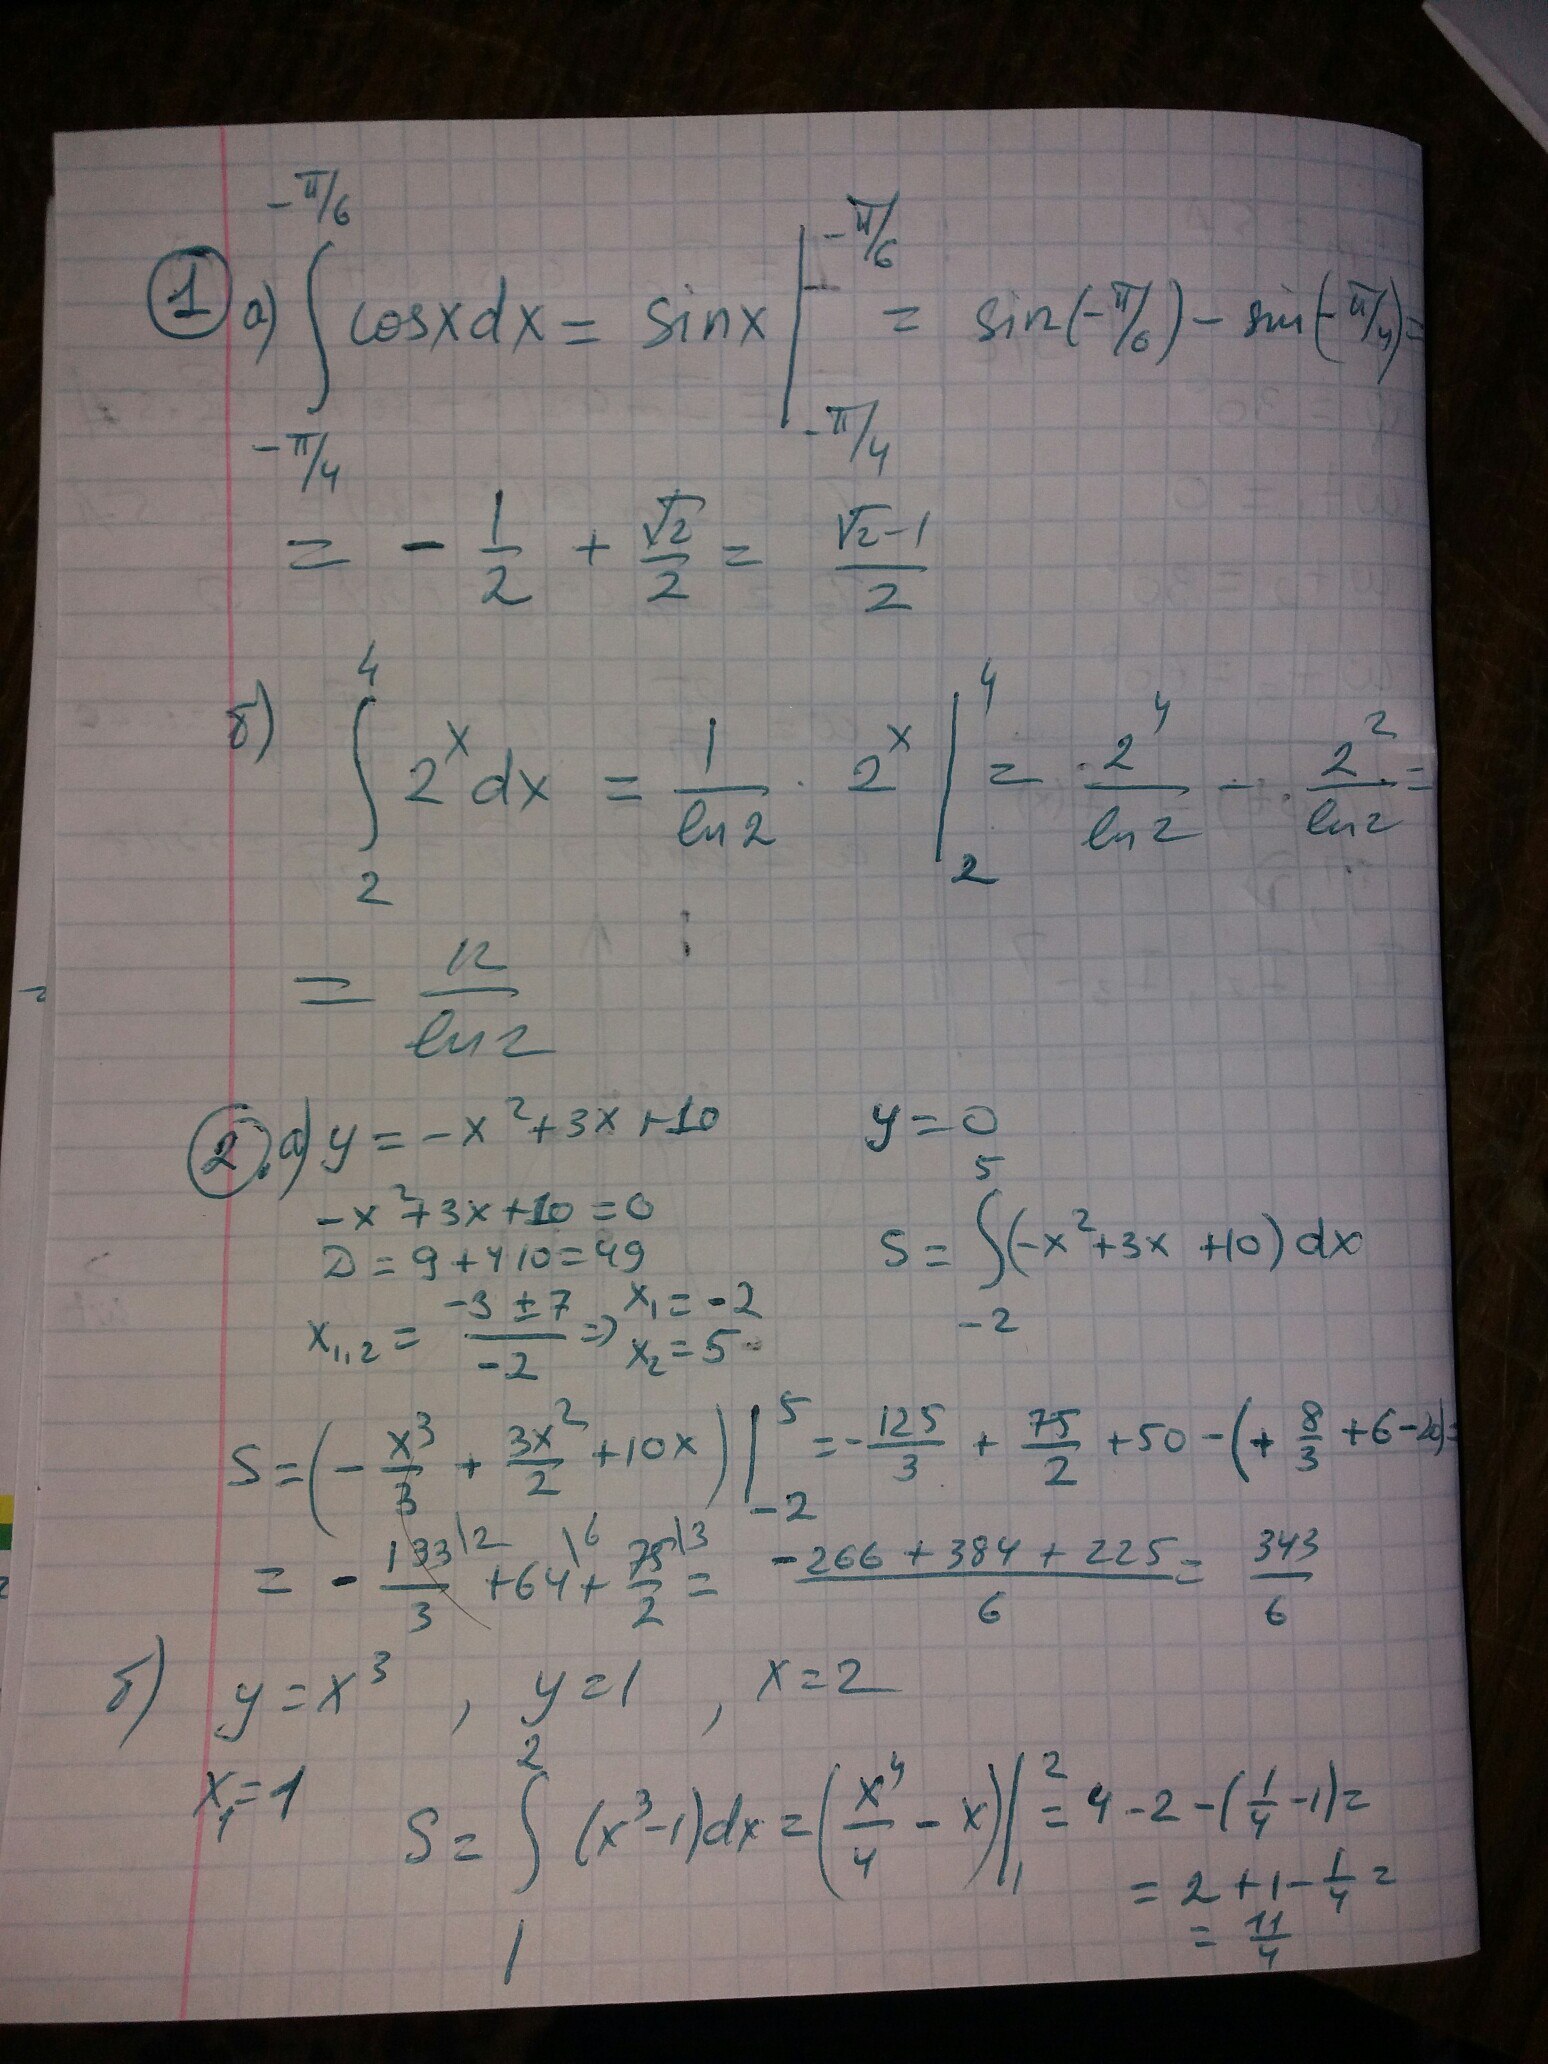 ① а) ∫_{-π/4}^{-π/6} cosx dx = sinx |_{-π/4}^{-π/6} = sin(-π/6) - sin(-π/4) =
= - 1/2 + √2/2 = (√2-1)/2
б) ∫_2^4 2^x dx = 1/ln2 · 2^x |_2^4 = 2^4/ln2 - 2^2/ln2 =
= 12/ln2
②. а) y = -x²+3x+10 y=0
-x²+3x+10=0
D = 9+4·10=49 S = ∫_{-2}^5 (-x²+3x+10) dx
x₁,₂ = (-3 ± 7)/-2 => x₁ = -2 x₂ = 5
S = (- x³/3 + 3x²/2 + 10x) |_{-2}^5 = - 125/3 + 75/2 + 50 - (+ 8/3 + 6 - 20) =
= - 133\2/3 + 64\6 + 75\3/2 = (-266 + 384 + 225)/6 = 343/6
б) y = x³ , y=1 , x=2
x₁=1 S = ∫_1^2 (x³-1)dx = (x⁴/4 - x) |_1^2 = 4 - 2 - (1/4 - 1) =
= 2 + 1 - 1/4 =
= 11/4